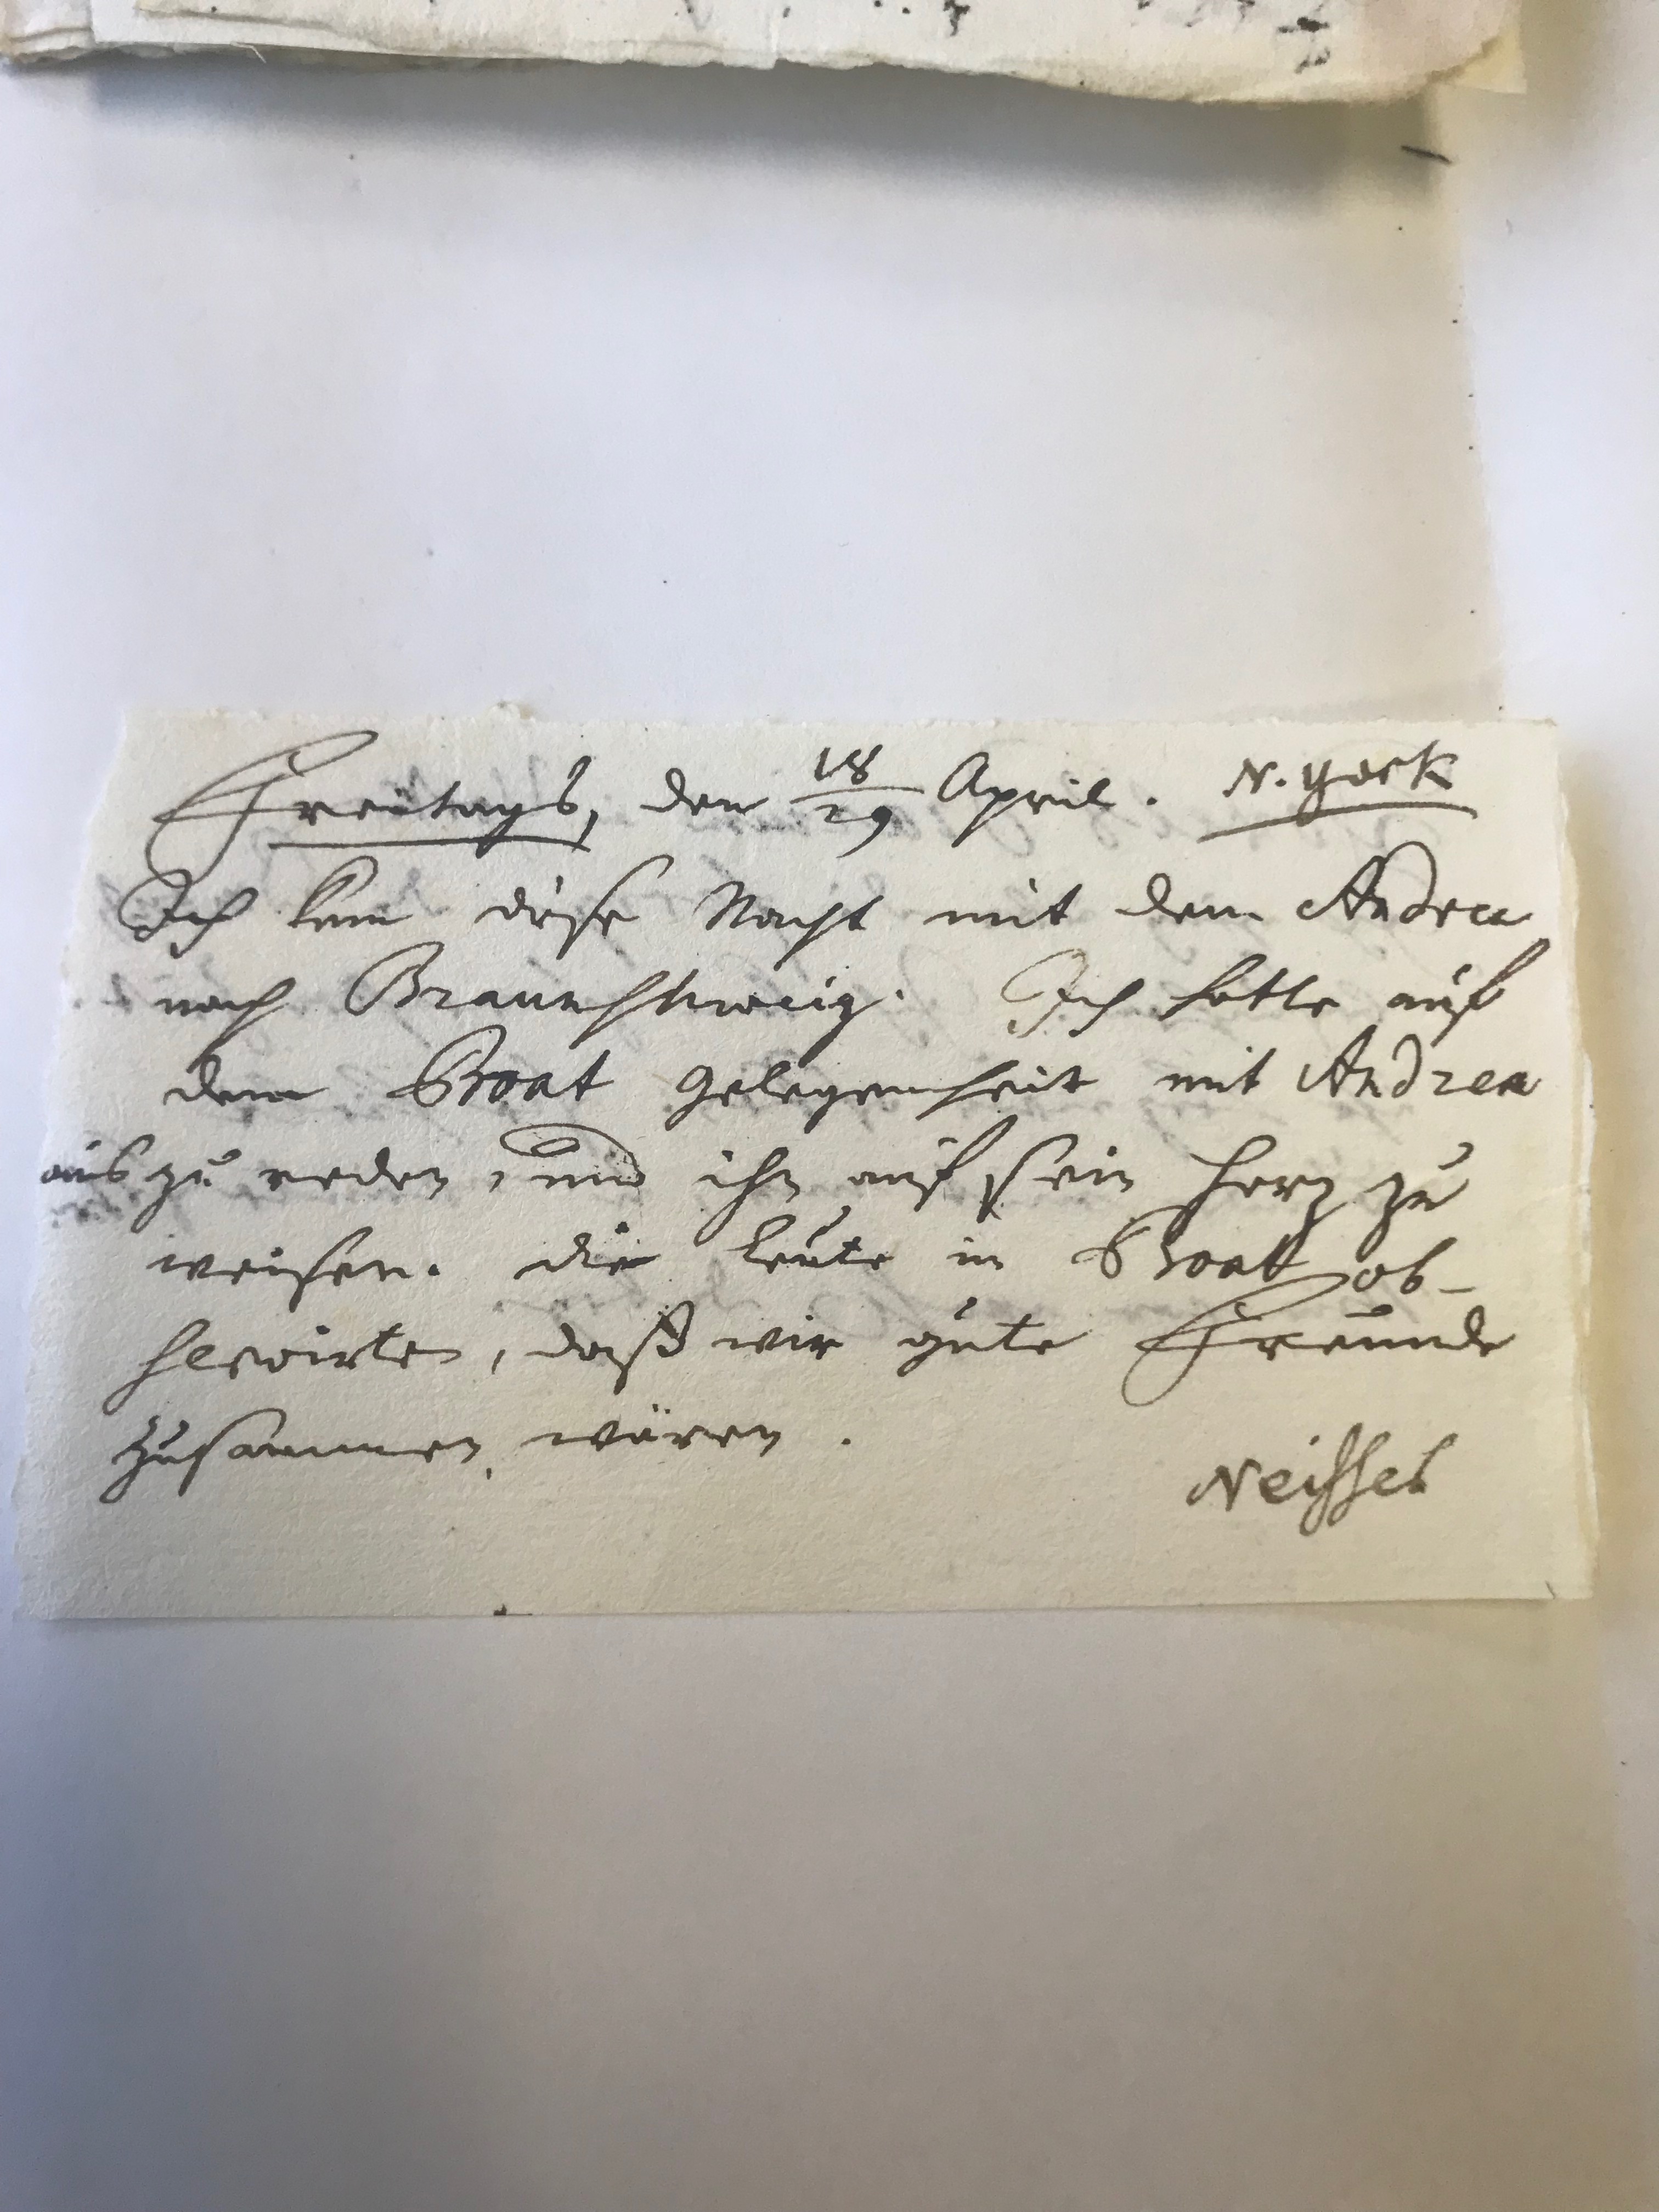 Freitags, den 18/29 April. N. York
Ich kam diese Nacht mit dem Andrea
nach Braunschweig. Ich hatte auf
dem Boat gelegenheit mit Andrea
aus zu reden, und ihn auf sein Herz zu
weisen. die leute in Boat ob-
serwirten, daß wir gute Freunde
zusammen wären.
Neisser